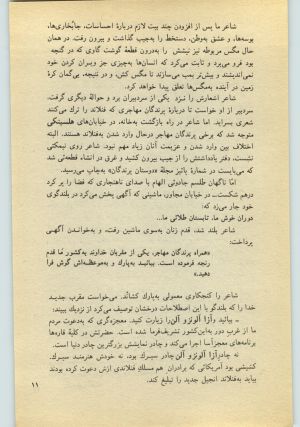 شاعر ما پس از افزودن چند بیت لازم دربارهٔ احساسات، جانبازی‌ها،
بوسه‌ها، و عشق به‌وطن، دستخط را به‌جیب گذاشت و بیرون رفت. در همان
حال مگس مربوطه نیز نیشش را به‌درون قطعهٔ گوشت گاوی که در گنجه
بود فرو می‌برد و ثابت می‌کرد که انسان‌ها به‌چیزی جز ویران کردن خود
نمی‌اندیشند و بیش‌تر بمب می‌سازند تا مگس کش، و در نتیجه، بی‌گمان کرهٔ
زمین در آینده به‌مگس‌ها تعلق پیدا خواهد کرد.
شاعر اشعارش را نزد یکی از سردبیران برد و حوالهٔ دیگری گرفت.
سردبیر از او خواست تا دربارهٔ پرندگان مهاجری که فنلاند را ترک می‌کنند
شعری بسراید. اما شاعر در راه بازگشت به‌خانه، در خیابان‌های هلسینکی
متوجه شد که برخی پرندگان مهاجر درحال وارد شدن به‌فنلاند هستند. البته
اختلاف بین وارد شدن و عزیمت آنان زیاد مهم نبود. شاعر روی نیمکتی
نشست، دفتر یادداشتش را از جیب بیرون کشید و غرق در انشاء قطعه‌ئی شد
که می‌بایست در شمارهٔ پائیز مجلهٔ «دوستان پرندگان» به‌چاپ می‌رسید.
امّا ناگهان طلسم جادوئی الهام با صدای ناهنجاری که فضا را پر کرد
درهم شکست– در خیابان مجاور، ماشینی که آگهی پخش می‌کرد در بلندگوی
خود می‌خواند:
دوران خوش ما، تابستان طلائی ما...
شاعر بلند شد، قدم زنان به‌سوی ماشین رفت، و به‌خواندن آگهی
پرداخت:
«همراه پرندگان مهاجر، یکی از مقربان خداوند به‌کشور ما قدم
رنجه فرموده است. بیائید به‌پارک و به‌موعظه‌اش گوش فرا
دهید.»
شاعر را کنجکاوی معمولی به‌پارک کشاند. می‌خواست مقرب جدید
خدا را که بلندگو با این اصطلاحات درخشان توصیف می‌کرد از نزدیک ببیند:
– بیائید و آزا آلونزو آلن را زیارت کنید. معجزه‌گری که به‌دعوت مردم
ما از غرب دور به‌این‌کشور تشریف‌فرما شده است. حضرتش در کلیهٔ قاره‌ها
برنامه‌های معجزآسا اجرا می‌کند و چادر نمایشش بزرگترین چادر دنیا است.
نه چادر آزا آلونزو آلن چادر سیرک بود، نه خودش هنرمند سیرک.
کشیشی بود آمریکائی که برادران هم مسلک فنلاندی ازش دعوت کرده بودند
بیاید به‌فنلاند انجیل جدید را تبلیغ کند.
۱۱